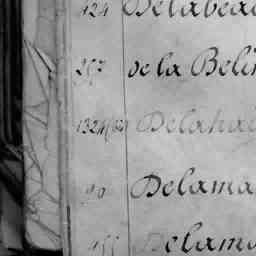 424 Delabeau
257 de la Beli
Delahay
90 Delama
Delama